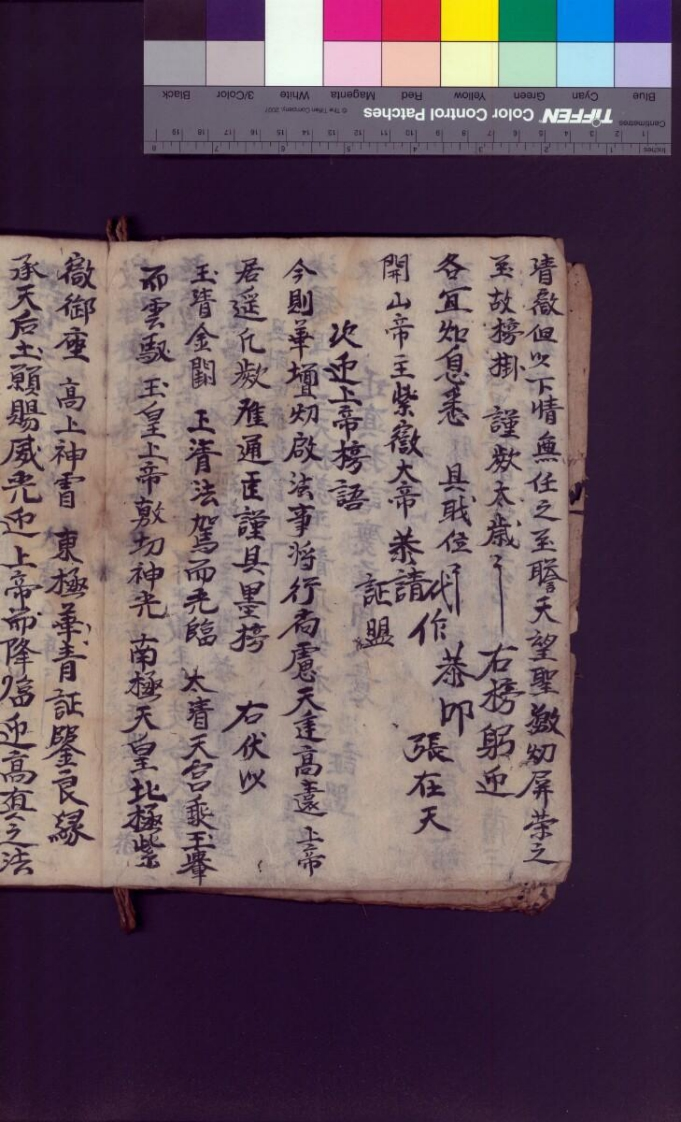 清微但以下情無任之至瞻天望聖激切屏荣之
至故榜掛 謹欵太歲 右榜躬迎
各宜知息悉 具戢位 代作 恭叩 張在天
開山帝主紫微大帝 恭請 証盟
次迎上帝榜語
今則華壇切啟法事将行有慮天逹高遠上帝
居遥凡欵惟通臣謹具墨榜 右伏以
玉清金闕 上清法駕而来臨 太清天宫乘玉轝
而雲馭 玉皇上帝敷切神光 南極天皇北極紫
微御座 高上神霄 東極華青証鑒良緣
承天后土願賜威光迎上帝而降臨迎高真之法
Black
3/Color
White
Magenta
Red
Yellow
Green
Cyan
Blue
© The Tiffen Company, 2007
TIFFEN Color Control Patches
Centimetres
1 2 3 4 5 6 7 8 9 10 11 12 13 14 15 16 17 18 19
Inches
1 2 3 4 5 6 7 8